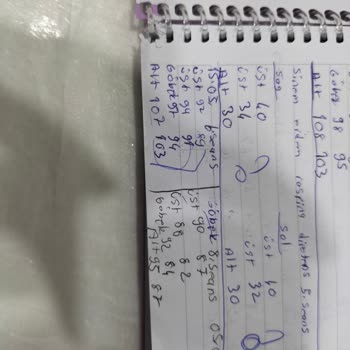 Göbek 98 95
Alt 108 103
5. seans
Sağ Sol
üst 40 üst 40
üst 34 üst 32
Alt 30 Alt 30
15.05 6.seans 8.seans
üst 92 89 üst 90 87
üst 94 91 üst 88 82
Göbek 97 94 Göbek 92 84
Alt 107 103 Alt 95 87